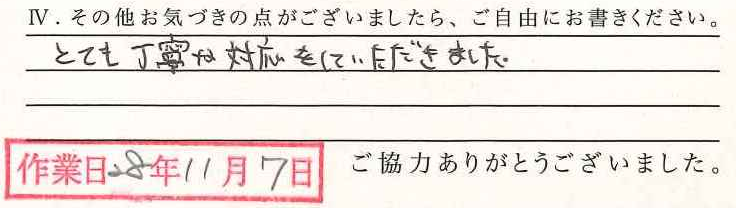 Ⅳ．その他お気づきの点がございましたら、ご自由にお書きください。
とても丁寧な対応をしていただきました。
作業日28年11月7日
ご協力ありがとうございました。